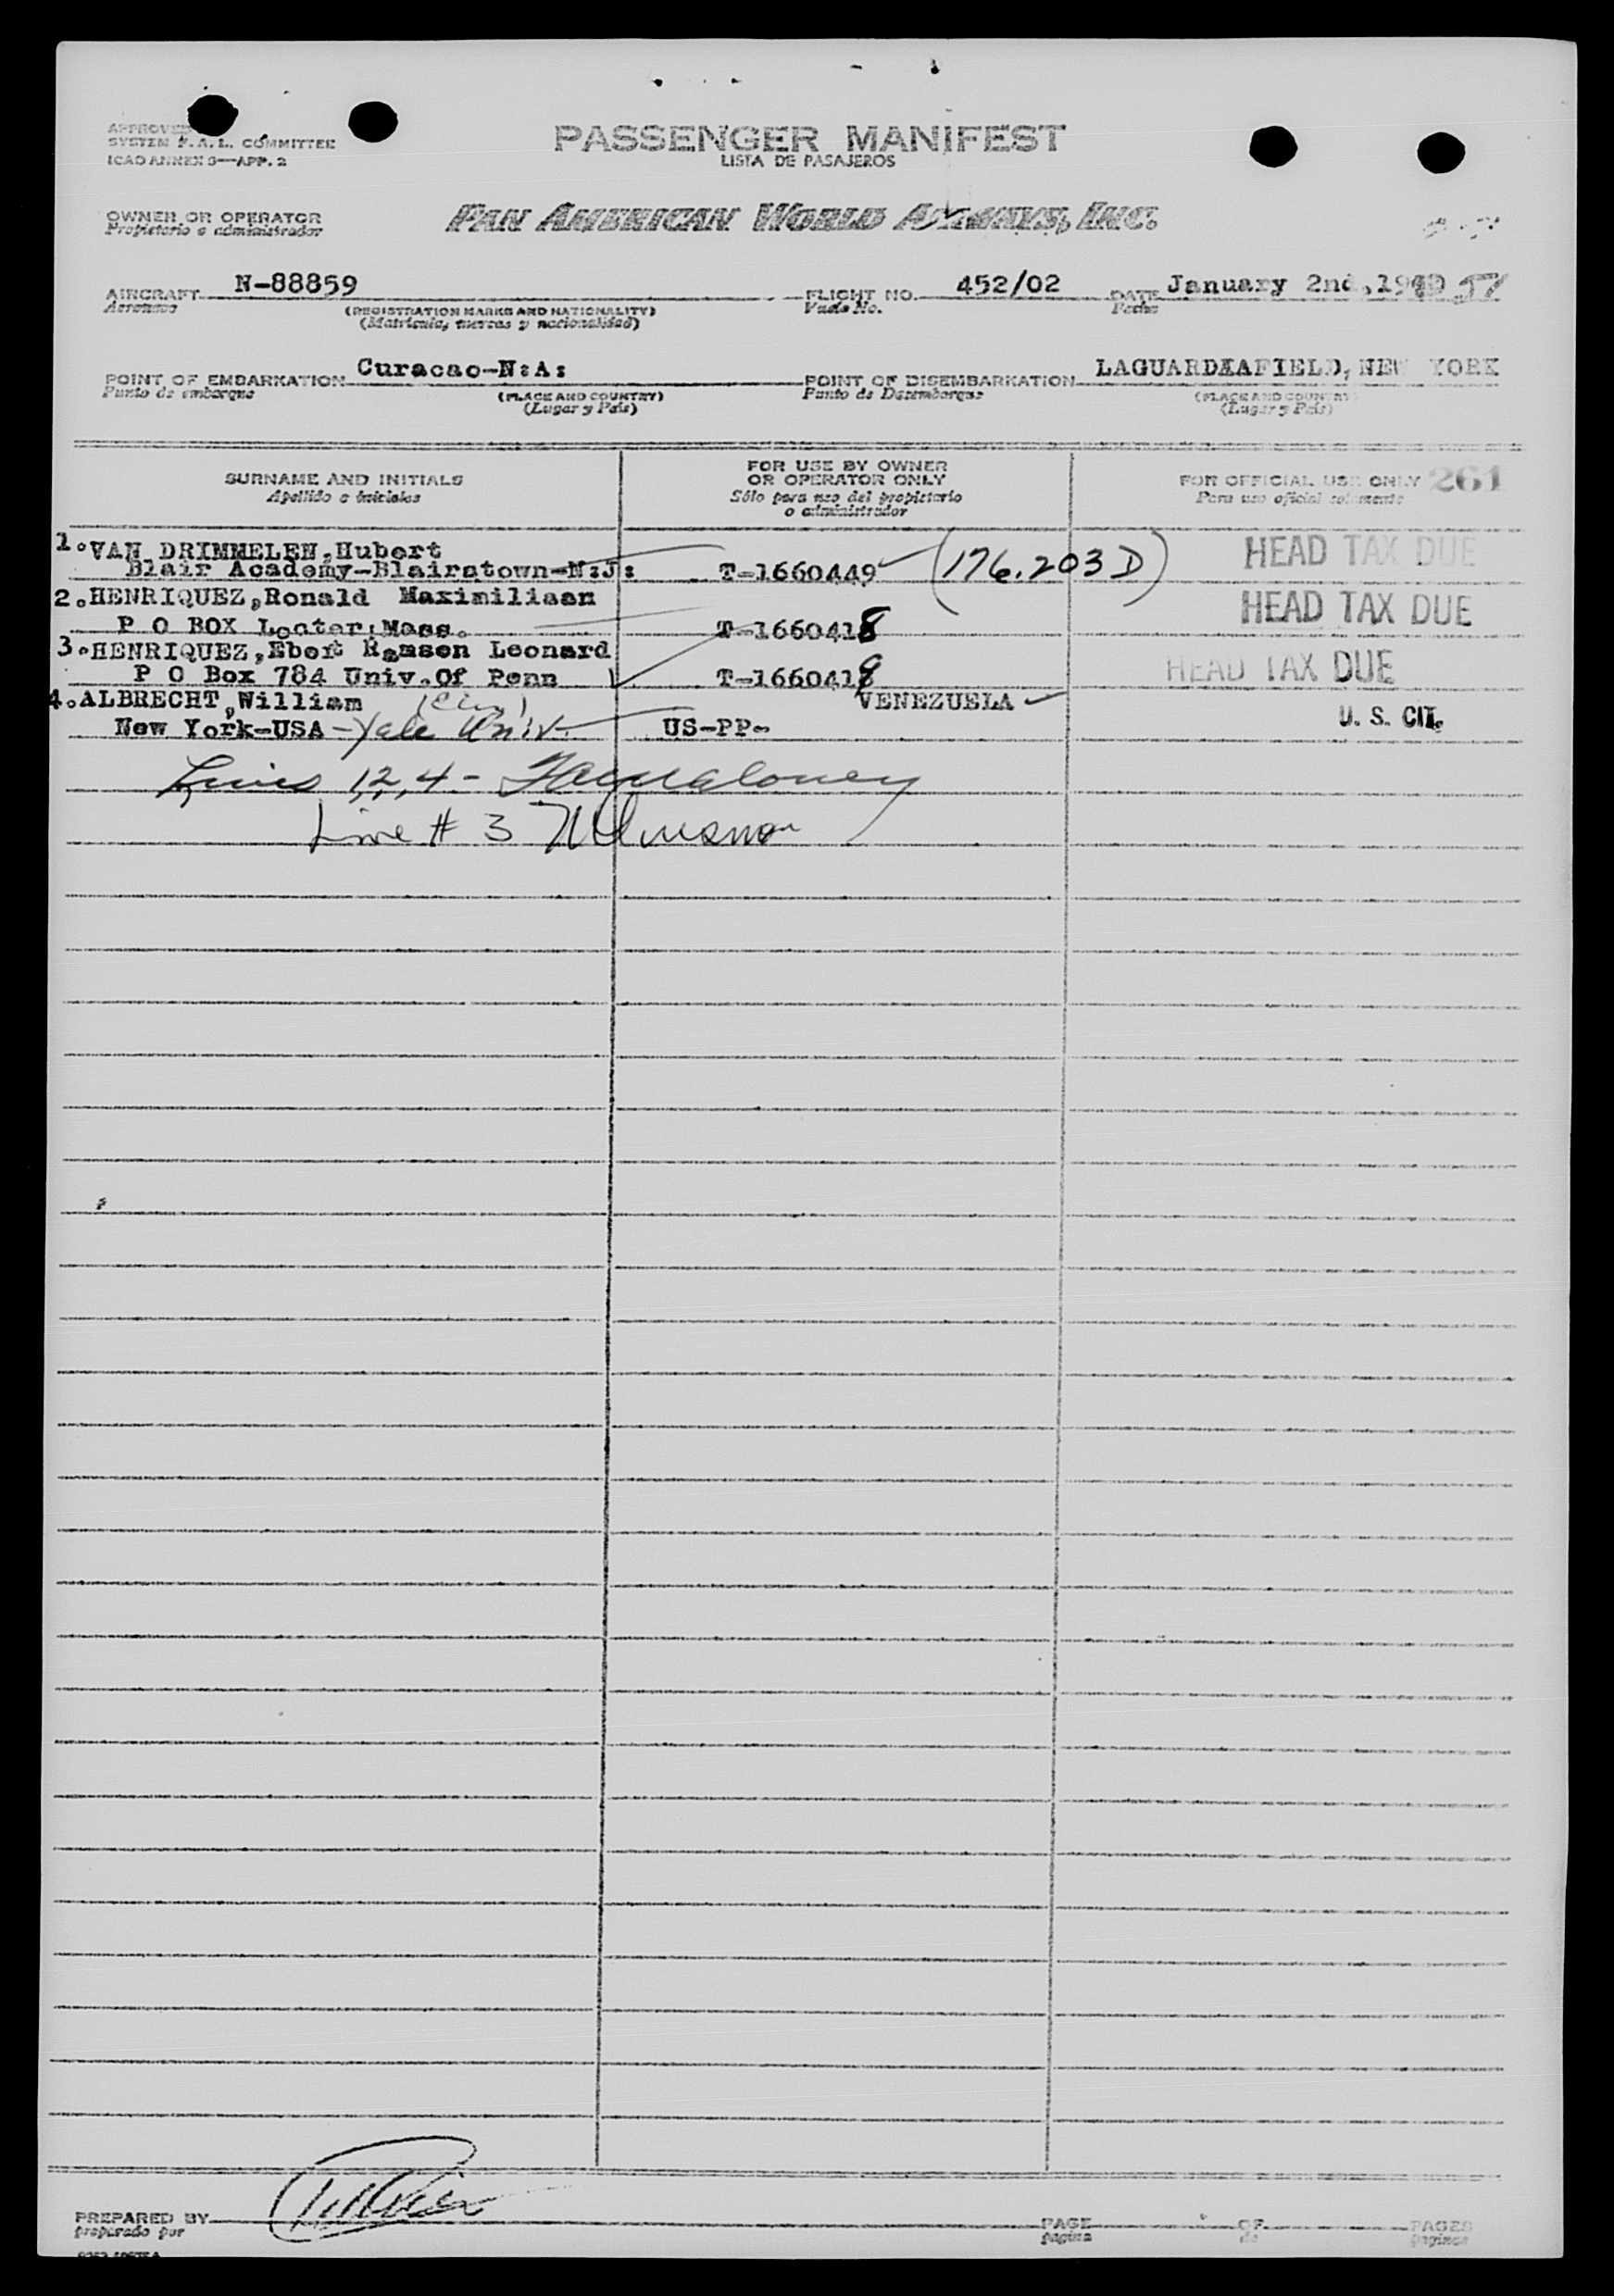 APPROVED
SYSTEM F.A.L. COMMITTEE
ICAO ANNEX 9—APP. 2
PASSENGER MANIFEST
LISTA DE PASAJEROS
OWNER OR OPERATOR
Propietario o administrador
PAN AMERICAN WORLD AIRWAYS, INC.
AIRCRAFT N-88859 FLIGHT NO. 452/02 DATE January 2nd, 19 51
Aeronave (REGISTRATION MARKS AND NATIONALITY) Vuelo No. Fecha
(Matrícula, marcas y nacionalidad)
POINT OF EMBARKATION Curacao-N:A: POINT OF DISEMBARKATION LAGUARDIAFIELD, NEW YORK
Punto de embarque (PLACE AND COUNTRY) Punto de Desembarque (PLACE AND COUNTRY)
(Lugar y País) (Lugar y País)
SURNAME AND INITIALS FOR USE BY OWNER OR OPERATOR ONLY FOR OFFICIAL USE ONLY 261
Apellido e iniciales Sólo para uso del propietario o administrador Para uso oficial solamente
1. VAN DRIMMELEN, Hubert HEAD TAX DUE
Blair Academy-Blairstown-N:J: T-1660449 (176.203 D)
2. HENRIQUEZ, Ronald Maximiliaan HEAD TAX DUE
P O BOX Mass. T-1660418
3. HENRIQUEZ, Ebert Leonard HEAD TAX DUE
P O Box 784 Univ. Of Penn T-1660419
4. ALBRECHT, William VENEZUELA
New York-USA - Yale Univ. US-PP- U. S. CIT.
Lines 1, 2, 4 -
Line # 3
PREPARED BY PAGE OF PAGES
preparado por página de páginas